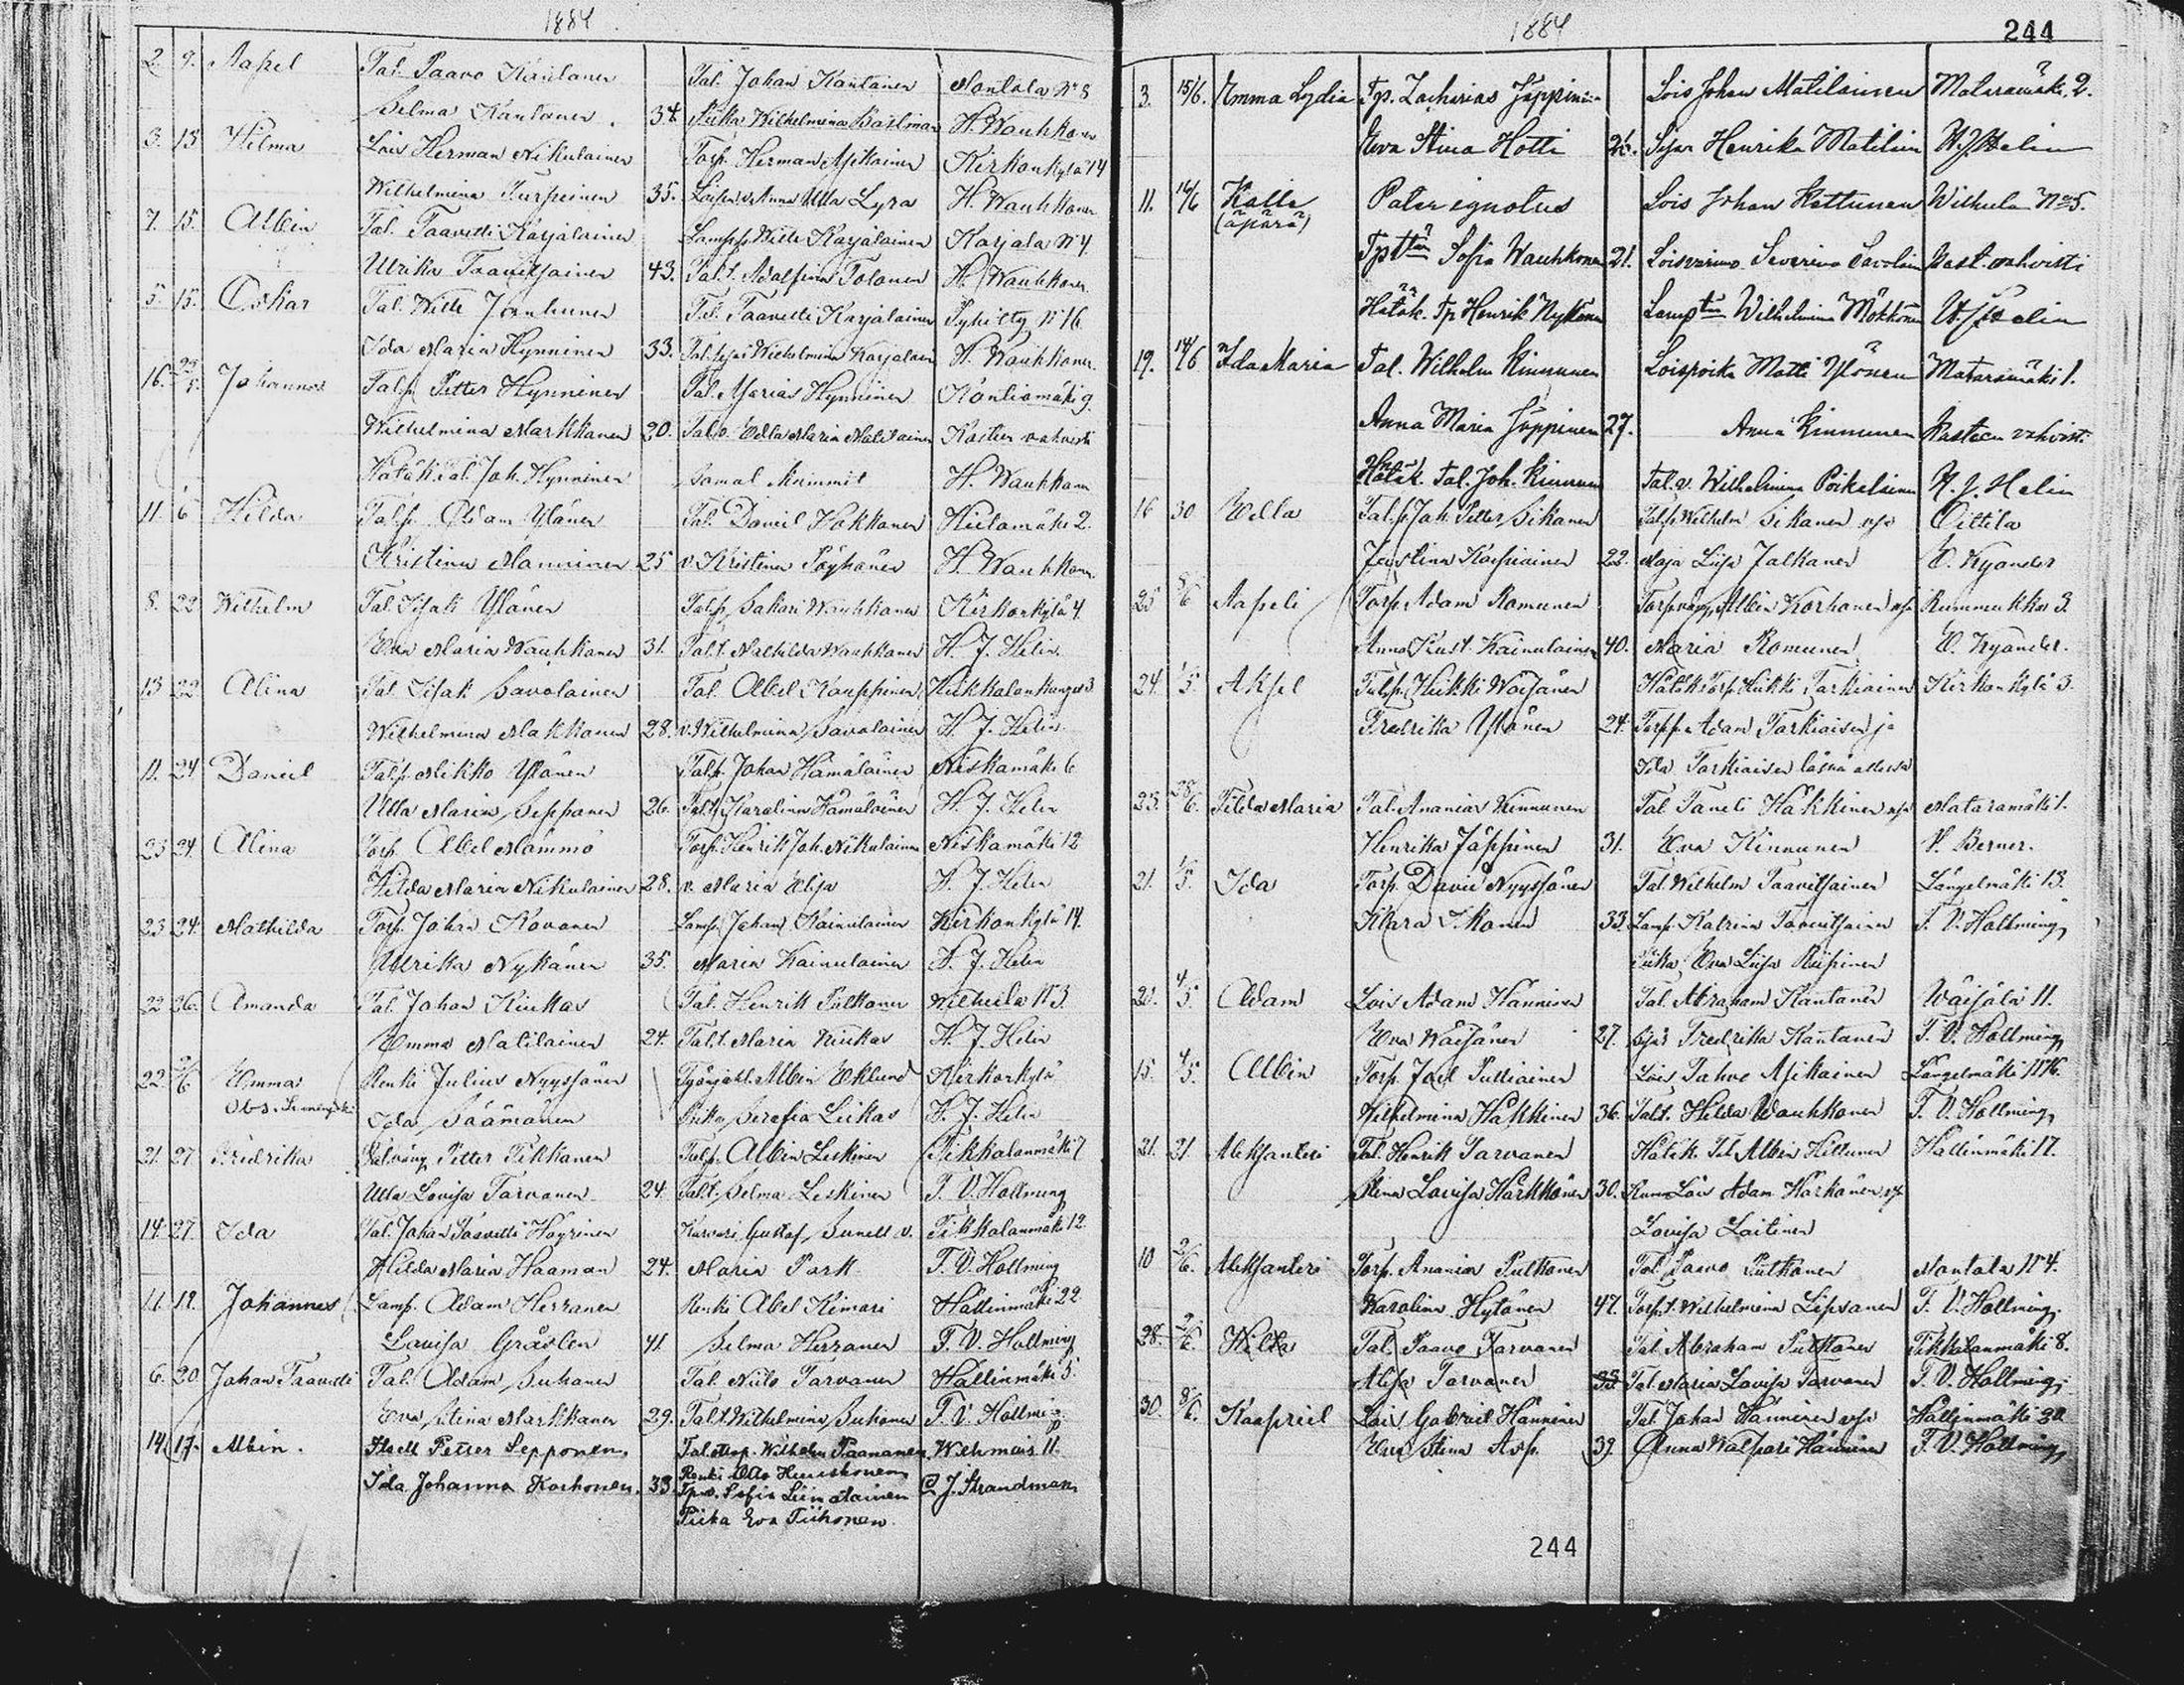 1884.
2. 9. Aapel Tal. Paavo Kautanen Tal. Johan Kantanen Nontala N:o 8
Selma Kantanen 34. Piika Wilhelmina Bastman H. Wauhkonen
3. 13 Hilma Lois Herman Nikulainen Torp. Herman Asikainen Kirkonkylä 14
Wilhelmina Turpeinen 35. Anna Ulla Lyra H. Wauhkonen
7. 15. Albin Tal. Taavetti Karjalainen Lampp. Wille Karjalainen Karjala N:o 4
Ulrika Taavitsainen 43. Tal. t. Adolfina Tolanen H. Wauhkonen
5. 15. Oskar Tal. Wille Janhunen Tal. Taavetti Karjalainen Pyhilty N:o 16
Ida Maria Hynninen 33. Wilhelmina Karjalainen H. Wauhkonen
16. Johannes Talp. Petter Hynninen Tal. Hynninen Kontiomäki 9.
Wilhelmina Markkanen 20. Tal. v. Edla Maria Matilainen Kasteen vahvisti
Hätäk. Tal. Joh. Hynninen Samat kummit H. Wauhkonen
11. 6 Hilda Talp. Adam Ylänen Tal. Daniel Kokkonen Hietamäki 2.
Kristina Manninen 25 v. Kristina Pöyhönen H. Wauhkonen
8. 22 Wilhelm Tal. Isak Ylänen Talp. Sakari Wauhkonen Kirkonkylä 4.
Eva Maria Wauhkonen 31. Tal. t. Mathilda Wauhkonen H. J. Helin
13 22 Alina Tal. Isak Savolainen Tal. Abel Kauppinen
Wilhelmina Makkonen 28. v. Wilhelmina Savolainen H. J. Helin
11. 24 Daniel Talp. Mikko Ylänen Talp. Johan Hämäläinen Niskamäki 6
Ulla Maria Seppänen 26. Tal. t. Karolina Hämäläinen H. J. Helin
23 24. Alina Torp. Abel Mämmö Torp. Henrik Joh. Nikulainen Niskamäki 12
Hilda Maria Nikulainen 28. v. Maria Elisa H. J. Helin
23 24. Mathilda Torp. Johan Kovanen Lamp. Johan Kainulainen Kirkonkylä 14.
Ulrika Nykänen 35. Maria Kainulainen H. J. Helin
22 26. Amanda Tal. Johan Kiukas Tal. Henrik Pulkonen Wilhula N:o 3.
Emma Matilainen 24. Tal. t. Maria Kiukas H. J. Helin
22. 2/6 Emma Renki Julius Nyyssönen Työnjoht. Albin Eklund Kirkonkylä
Ida Säämänen Piika Serafia Leikas H. J. Helin
21. 27 Fredrika Talväng. Petter Tikkanen Talp. Albin Leskinen Tikkalanmäki 7
Ulla Lovisa Tarvanen 24. Tal. t. Selma Leskinen T. V. Hallming
14. 27. Ida Tal. Johan Taavetti Häyrinen Karvari Gustaf Sunell v. Tikkalanmäki 12.
Hilda Maria Haaman 24. Maria Park T. V. Hallming
11. 19. Johannes Lamp. Adam Herranen Renki Abel Kimari Hällinmäki 22
Lovisa Gråsten 41 Selma Herranen T. V. Hallming
6. 20 Johan Taavetti Tal. Adam Suhonen Tal. Niilo Tarvanen Hällinmäki 5.
Eva Stina Markkanen 29. Tal. t. Wilhelmina Suhonen T. V. Hallming
14. 17. Albin. Itsell. Petter Sepponen Wilhelm Paananen Wilhmais 11.
Ida Johanna Korhonen. 33. Renki Otto Huuskonen
Tp. v. Sofia Liimatainen J. Strandman
Piika Eva Tiihonen.
1884 244
3. 15/6. Emma Lydia Tp. Zacharias Jäppinen Lois Johan Matilainen Mataramäki 2.
Eva Stina Hotti 26. Sisar Henrika Matilain H. J. Helin
11. 16/6 Kalle Pater ignotus Lois Johan Kettunen Wilhula N:o 5.
(äpärä)
Tpt:tär Sofia Wauhkonen 21. Loisvaimo Severina Savolain Past. vahvisti
Hätäk. Tp Henrik Nykänen Lamp:tär Wilhelmina Mökkönen H. J. Helin
19. 14/6 Ida Maria Tal. Wilhelm Kinnunen Loispoika Matti Ylönen Mataramäki 1.
Anna Maria Jäppinen 27. Anna Kinnunen Kasteen vahvisti
Hätäk. Tal. Joh. Kinnunen Tal. v. Wilhelmina Poikolainen H. J. Helin
16 30 Edla Talp. Joh. Petter Sikanen Talp. Wilhelm Sikanen Oittila
Justina Kaipiainen 22. Maja Liisa Jalkanen E. Kyander
25 8/6 Aapeli Torp. Adam Romunen Albin Korhonen Rummukka 3.
Anna Kust. Kainulainen 40. Maria Romunen E. Kyander.
24. 1/5 Aksel Talp. Heikki Wäisänen Hätäk. Torp. Heikki Tarkiainen Kirkonkylä 3.
Fredrika Ylönen 24. Torpp. Adam Tarkiaisen ja
Ida Tarkiaisen läsnä ollessa
25. 28/6. Tilda Maria Tal. Ananias Kinnunen Tal Taneli Häkkinen Mataramäki 1.
Henrika Jäppinen 31. Eva Kinnunen V. Berner.
21. 1/5. Ida Torp. David Nyyssönen Tal. Wilhelm Taavitsainen Längelmäki 13.
Klara Ikonen 33. Lamp. Katrina Taavitsainen T. V. Hallming
Piika Eva Liisa Riipinen
2. 4/5. Adam Lois Adam Hänninen Tal. Abraham Kantanen Wäisälä 11.
Eva Wäisänen 27. Fredrika Kantanen T. V. Hallming
15. 4/5. Albin Torp. Joel Pulliainen Lois Tahvo Asikainen Längelmäki N:o 16.
Wilhelmina Häkkinen 36. Tal. t. Hilda Wauhkonen T. V. Hallming
21. 21. Aleksanteri Tal. Henrik Tarvanen Hätäk. Tal. Albin Hiltunen Hällinmäki 17.
Stina Lovisa Härkkönen 30. Adam Härkönen
Lovisa Laitinen
10 2/6. Aleksanteri Torp. Ananias Pulkonen Tal Paavo Pulkonen Nontala N:o 4.
Karolina Hytönen 47. Torp. t. Wilhelmina Lipsanen T. V. Hallming
28. 2/6. Hilda Tal. Paavo Tarvanen Tal Abraham Pulkonen Tikkalanmäki 8.
Alisa Tarvanen 35. Tal Maria Lovisa Tarvanen T. V. Hallming
30. 8/6. Kaapriel Lois Gabriel Hänninen Tal. Johan Hänninen Hällinmäki 20
Eva Stina Asp. 39. Anna Walpuri Hänninen T. V. Hallming
244